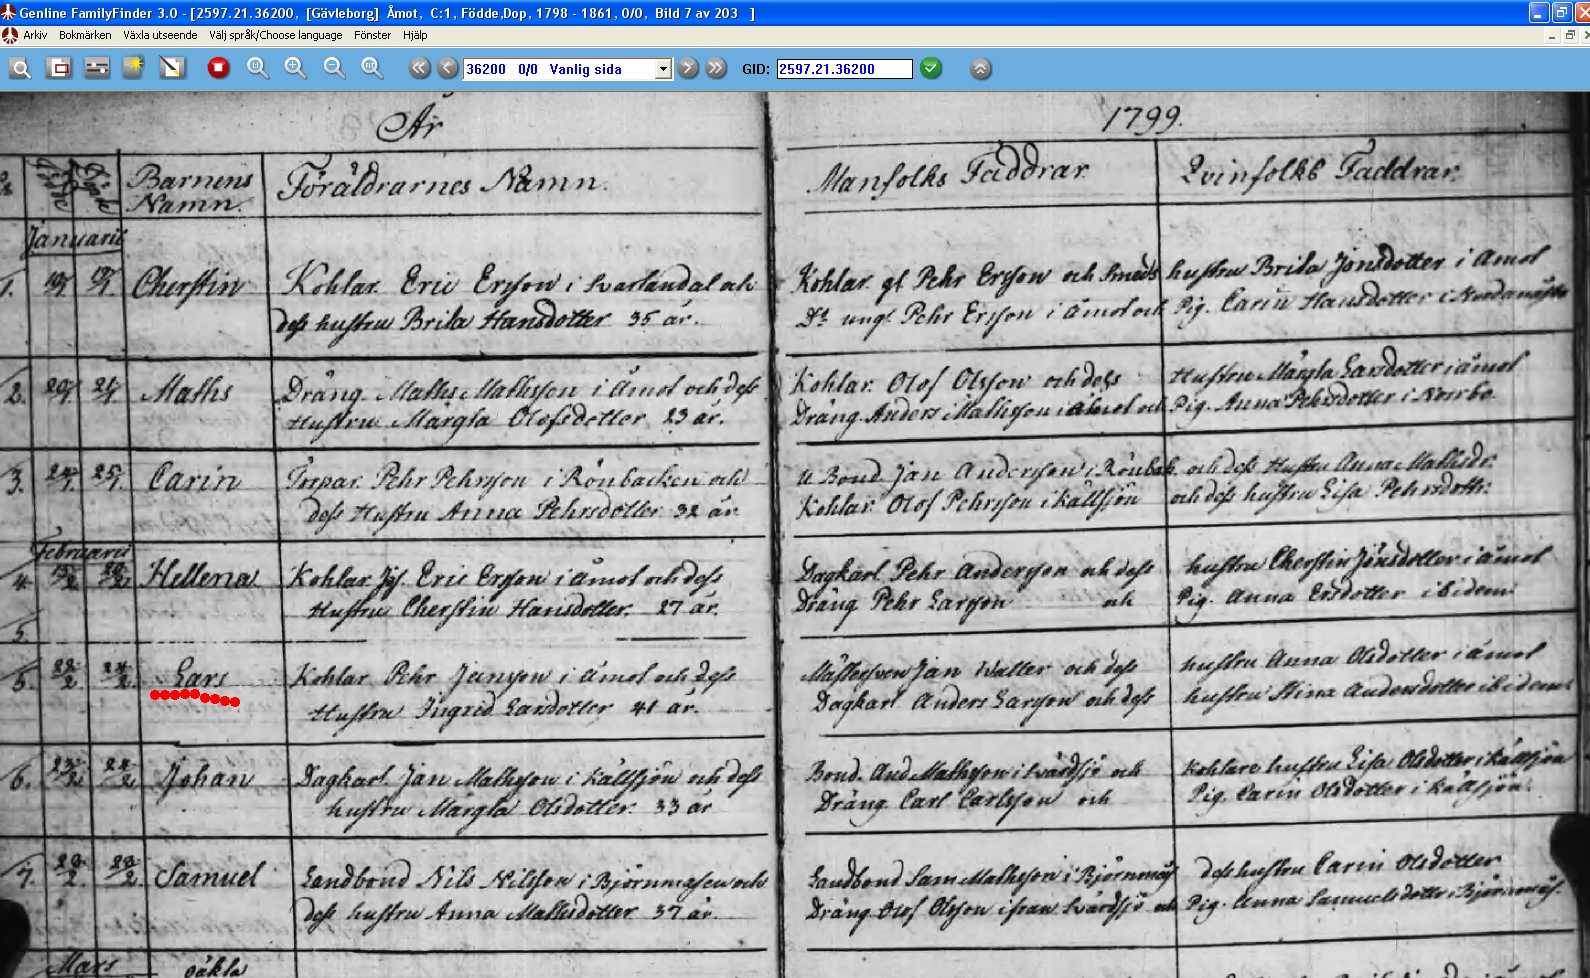 Genline FamilyFinder 3.0 - [2597.21.36200, [Gävleborg] Åmot, C:1, Födde,Dop, 1798 - 1861, 0/0, Bild 7 av 203 ]
Arkiv Bokmärken Växla utseende Välj språk/Choose language Fönster Hjälp
36200 0/0 Vanlig sida GID: 2597.21.36200
År 1799.
Barnens Föräldrarnes Namn. Manfolks Faddrar Qvinfolks Faddrar.
Namn.
Januarii
1. Cherstin Kohlar. Eric Ersson i Svartandal och Kohlar. gl Pehr Ersson och Smeds hustru Brita Jonsdotter i Åmot
dess hustru Brita Hansdotter 35 år. Dº ungl. Pehr Ersson i Åmot och Pig. Carin Hansdotter i
2. 20/1 21/1 Maths Dräng. Maths Mathsson i Åmot och dess Kohlar. Olof Olsson och dess Hustru Märgta Larsdotter i Åmot
Hustru Märgta Olofsdotter 23 år. Dräng. Anders Mathsson i Åmot och Pig. Anna Pehrsdotter i Norrbo.
3. 24/1 25/1 Carin Torpar. Pehr Pehrsson i Rönbacken och Bond. Jan Andersson i Rönbak. och dess Hustru Anna Mathsdr.
dess Hustru Anna Pehrsdotter 32 år. Kohlar. Olof Pehrsson i Källsjön och dess hustru Lisa Pehrsdottr.
Februarii
4. Hellena Kohlar. Eric Ersson i Åmot och dess Dagkarl Pehr Andersson och dess hustru Cherstin Jönsdotter i Åmot
Hustru Cherstin Hansdotter. 27 år. Dräng Pehr Larsson och Pig. Anna Ersdotter ibidem
5.
5. 22/2 24/2 Lars Kohlar Pehr Jansson i Åmot och dess Mästersven Jan Walter och dess hustru Anna Olsdotter i Åmot
Hustru Ingrid Larsdotter 41 år. Dagkarl Anders Larsson och dess hustru Stina Andersdotter ibidem
6. 23/2 24/2 Johan Dagkarl. Jan Mathsson i Källsjön och dess Bond. And Mathsson i Svärdsjö och Kohlare hustru Lisa Olsdotter i Källsjön
hustru Margta Olsdotter. 33 år Dräng. Carl Carlsson och Pig. Carin Olsdotter i Källsjön.
7. Samuel Landbond Nils Nilsson i Björnmosen och Landbond Sam Mathsson i Björnmos dess hustru Carin Olsdotter
dess hustru Anna Mathsdotter 37 år. Dräng. Olof Olsson ifrån Svärdsjö och Pig. Anna Samuelsdotter i Björnmos.
Mars oäkta